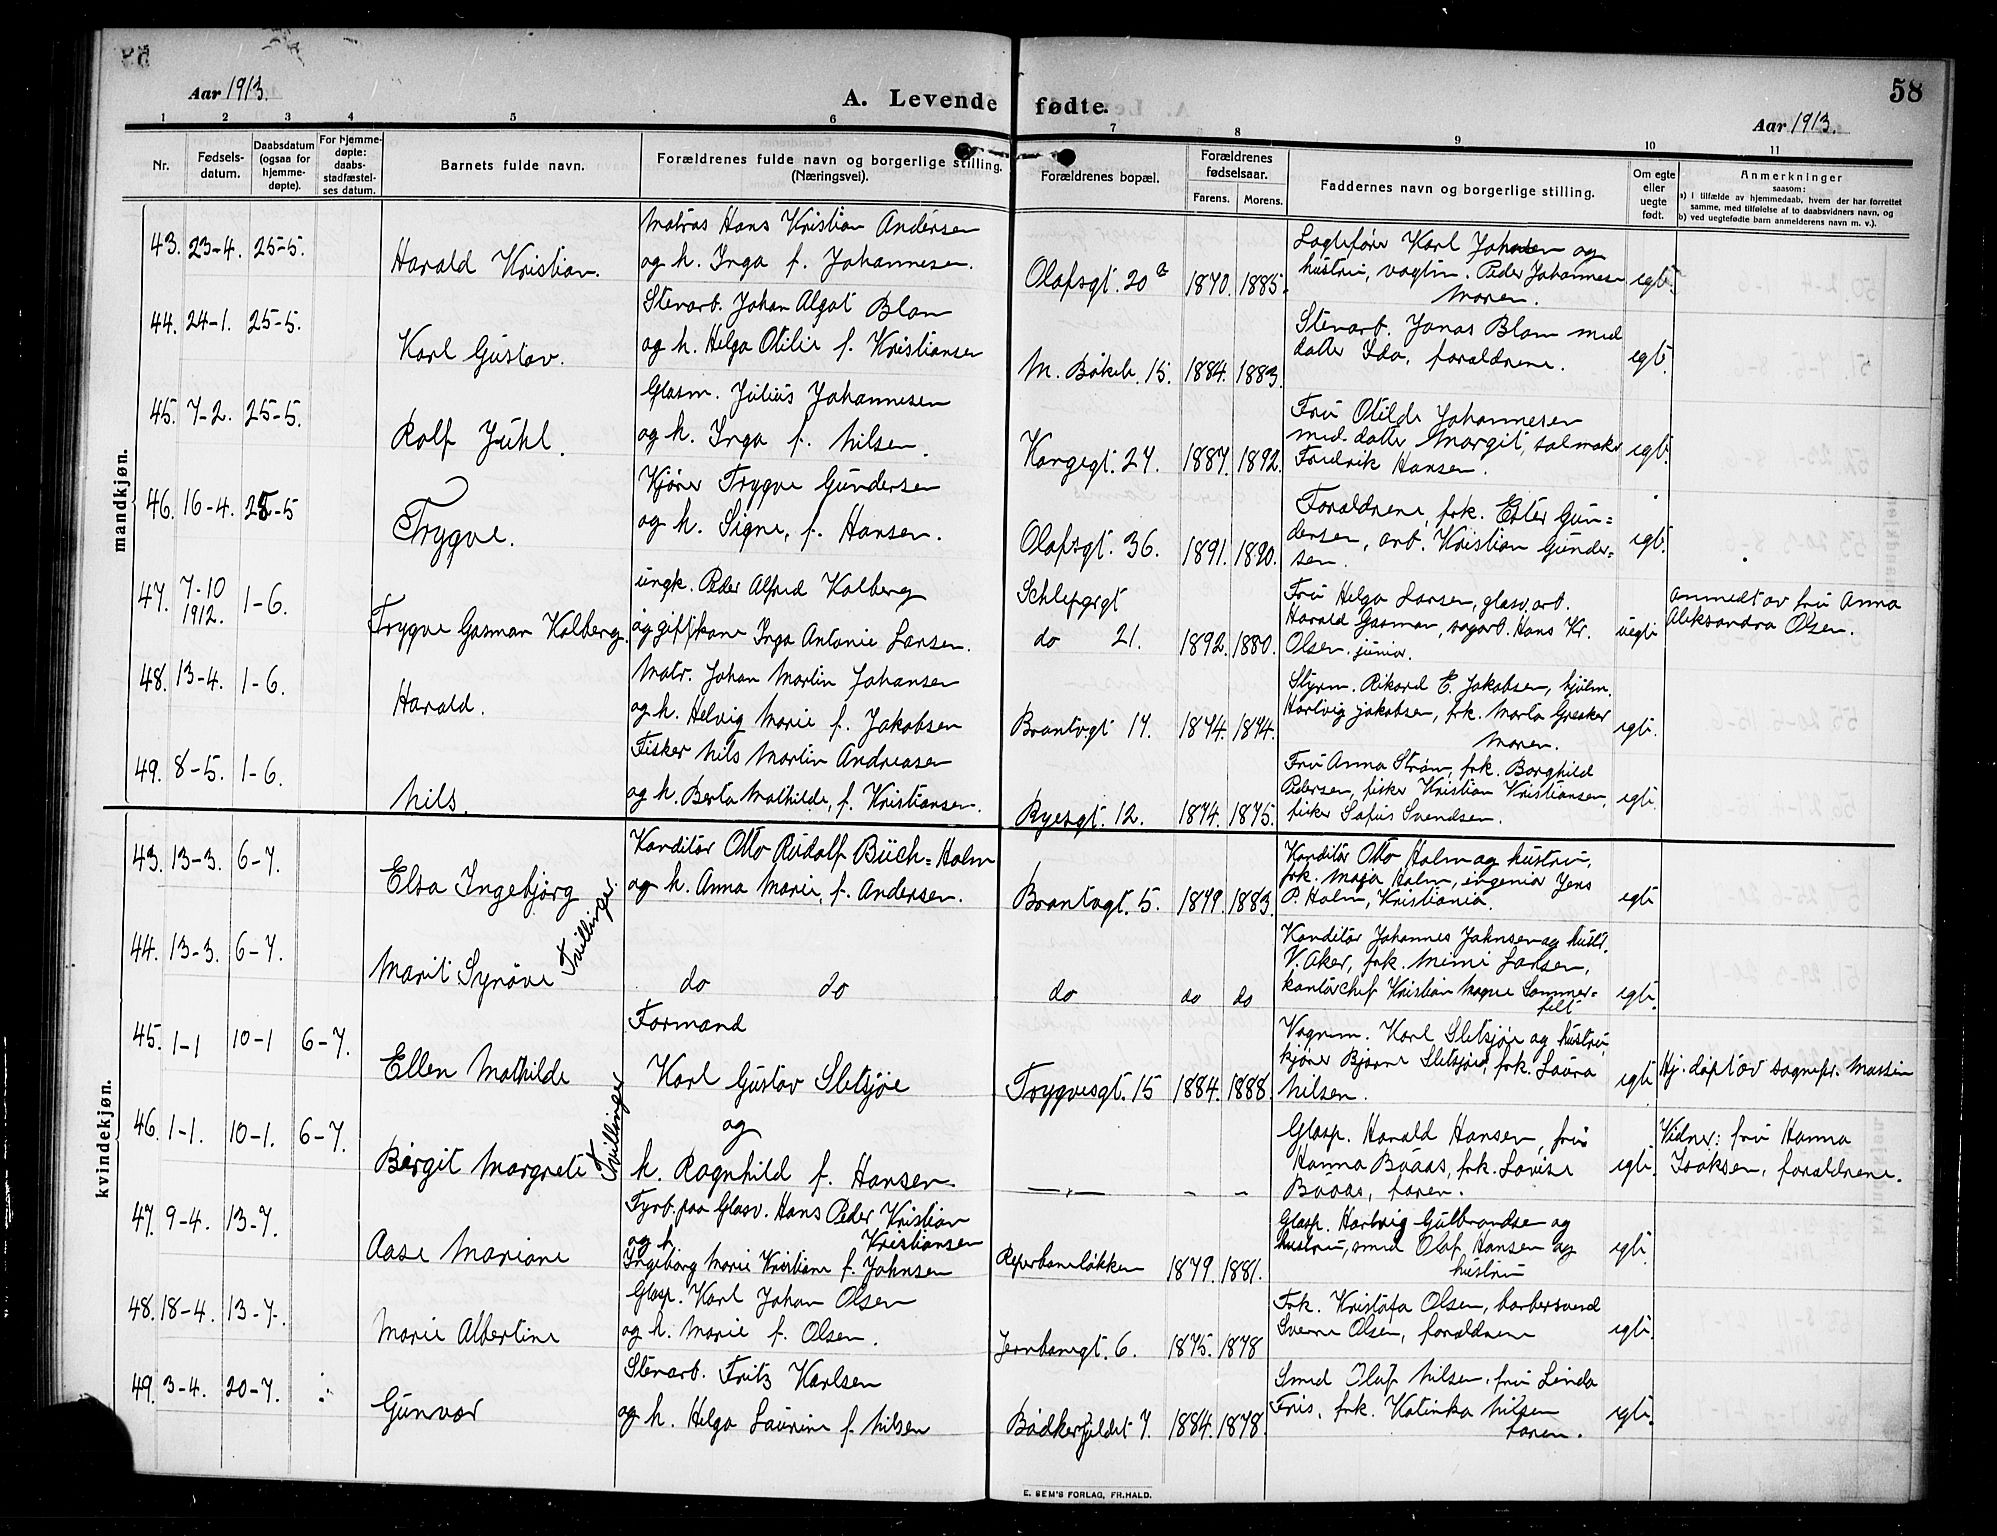 58
Aar 1913.
A. Levende fødte.
Aar 1913.
1 2 3 4 5 6 7 8 9 10 11
Nr.
Fødsels-
datum.
Daabsdatum
(ogsaa for
hjemme-
døpte).
For hjemme-
døpte:
daabs-
stadfæstel-
ses datum.
Barnets fulde navn.
Forældrenes fulde navn og borgerlige stilling.
(Næringsvei).
Forældrenes bopæl.
Forældrenes
fødselsaar.
Farens. Morens.
Faddernes navn og borgerlige stilling.
Om egte
eller
uegte
født.
Anmerkninger
saasom:
a) I tilfælde av hjemmedaab, hvem der har forrettet
samme, med tilføielse af to daabsvidners navn, og
b) ved uegtefødte barn anmelderens navn m. v.).
mandkjøn.
43. 23-4. 25-5.
Harald Kristian.
Matros Hans Kristian Andersen
og h. Inga f. Johannesen.
Olafsgt. 20a 1870. 1885.
Lagtefører Karl Johnsen og
hustru, vagtm. Peder Johannesen
moren.
egte.
44. 24-1. 25-5.
Karl Gustav.
Stenarb. Johan Algot Blom
og h. Helga Otilie f. Kristiansen
M. Bökele. 15. 1884. 1883.
Stenarb. Jonas Blom med
datter Ida, forældrene.
egte.
45. 7-2. 25-5.
Rolf Juhl.
Glasm. Julius Johannesen
og h. Inga f. Nilsen.
Kongegt. 27. 1887. 1892.
Fru Otilde Johannesen
med datter Margit, salmaker
Fredrik Hansen.
egte.
46. 16-4. 25-5
Trygve.
Kjører Trygve Gundersen
og h. Signe, f. Hansen.
Olafsgt. 36. 1891. 1890.
Forældrene, frk. Ester Gun=
dersen, arb. Kristian Gunder=
sen.
egte.
47. 7-10 1912. 1-6.
Trygve Gasman Kolberg.
ungk. Peder Alfred Kolberg
og gift kone Inga Antonie Larsen.
Schlepgrgt
do 21. 1892. 1880.
Fru Helga Larsen, glasv.arb.
Harald Gasman, sagarb. Hans Kr.
Olsen junior.
uegte
anmedt av fru Anna
Aleksandra Olsen.
48. 13-4. 1-6.
Harald.
Matr. Johan Martin Johansen
og h. Helvig Marie f. Jakobsen
Brantvgt 17. 1874. 1874.
Styrm. Rikard E. Jakobsen, hjulm.
Hartvig Jakobsen, frk. Marta Greaker
moren.
egte.
49. 8-5. 1-6.
Nils.
Fisker Nils Martin Andreasen
og h. Berta Mathilde, f. Kristiansen.
Ryesgt. 12. 1874. 1875.
Fru Anna Strøm, frk. Borghild
Pedersen, fisker Kristian Kristiansen,
fisker Sofus Svendsen.
egte.
kvindekjøn.
43. 13-3. 6-7.
Elsa Ingebjørg
Tvillinger.
Konditor Otto Rudolf Buch=Holm
og h. Anna Marie, f. Andersen.
Brantvgt. 5. 1879. 1883.
Konditor Otto Holm og hustru,
frk. Maja Holm, ingeniør Jens
P. Holm, Kristiania.
egte
44. 13-3. 6-7.
Marit Synøve
do do
do do do
Konditor Johannes Johnsen og hustr.
V. Aker, frk. Mimi Larsen,
kontorchef Kristian Magne Sommer=
felt
egte.
45. 1-1 10-1 6-7.
Ellen Mathilde
Tvillinger
Formand
Karl Gustav Sletsjøe
Trygvesgt. 15 1884. 1888.
Vognm. Karl Sletsjøe og hustru,
kjører Bjarne Sletsjøe, frk. Laura
Nilsen.
egte
Hj. døpt av sognepr. Massin
46. 1-1. 10-1. 6-7.
Birgit Margrete
og
h. Ragnhild f. Hansen.
—,— – –
Glasp. Harald Hansen, fru
Hanna Baaas, frk. Lovise
Baaas, faren.
egte.
Vidner: fru Hanna
Isaksen, forældrene.
47. 9-4. 13-7.
Aase Mariane
Fyrb. paa Glasv. Hans Peder Kristian
Kristiansen
og h.
Ingeborg Marie Kristiane f. Johnsen
Reperbaneløkken 1879. 1881.
Glasp. Hartvig Gulbrandsen og
hustru, smed Olaf Hansen og
hustru
egte.
48. 18-4. 13-7.
Marie Albertine
Glasp. Karl Johan Olsen
og h. Marie f. Olsen.
Jernbanegt. 6. 1875. 1878
Frk. Kristofa Olsen, barbersvend
Sverre Olsen, forældrene
egte.
49. 3-4. 20-7.
Gunvor
Stenarb. Fritz Karlsen
og h. Helga Laurine f. Nilsen
Bødkerfjeldet 7. 1884. 1878.
Smed Olaf Nilsen, fru Linda
Friis, frk. Katinka Nilsen
faren.
egte.
E. SEM'S FORLAG, FR.HALD.